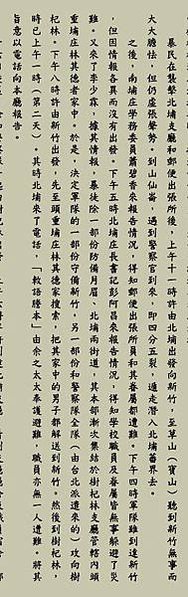 暴民在襲擊北埔支廳和郵便出張所後，上午十一時許由北埔出發向新竹，至草山（寶山）聽到新竹無事而
大大膽怯，但仍虛張聲勢。到山仙崙，遇到警察官到來，即四分五裂，遁走潛入北埔舊界去。
之後，南埔庄學務委員蕭碧香來報告情況，得知郵便出張所員和其眷屬都遭難。下午四時軍隊雖到達新竹
，但因情報各異而沒有出發。下午五時北埔庄長書記彭阿昌來報告情況，得知學校職員及眷屬皆無事躲避了災
難。又來了李少霖，據其情報，暴徒除一部份防備月眉、北埔兩街道，其本部漸次集結於樹杞林支廳管轄內頭
重埔庄林其德者家中。於是，決定軍隊的一部份守備新竹，另一部份和警察隊全隊（由台北派遣來的）攻向樹
杞林。下午八時許由新竹出發，先至頭重埔庄林其德家搜索，把其家中的男子都解送到新竹。然後到樹杞林，
時已上午一時（第二天），其時北埔來了電話，「敕語謄本」由余之太太奉護避難。職員亦無一人遭難。將其
旨意以電話向本廳報告。